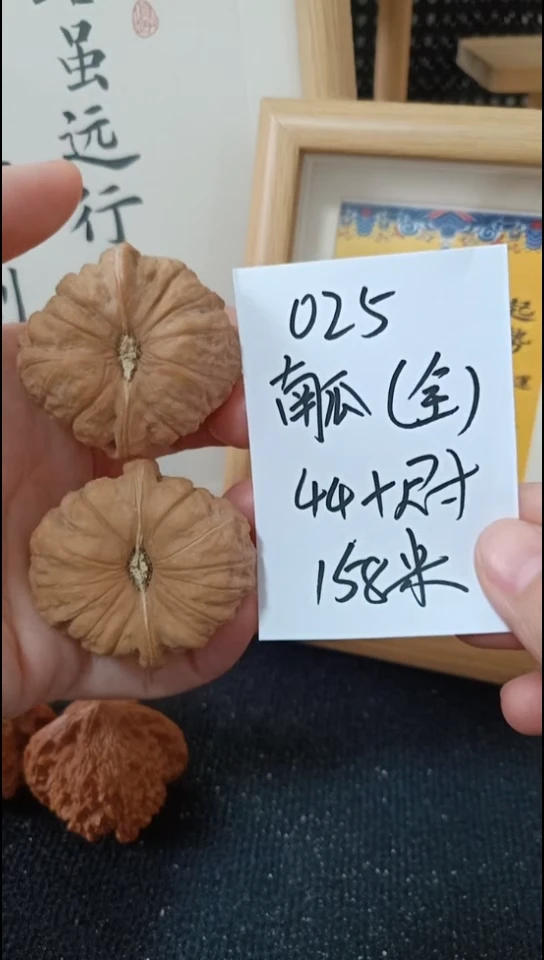 虽远行
025
南瓜(全)
44+尺寸
158米